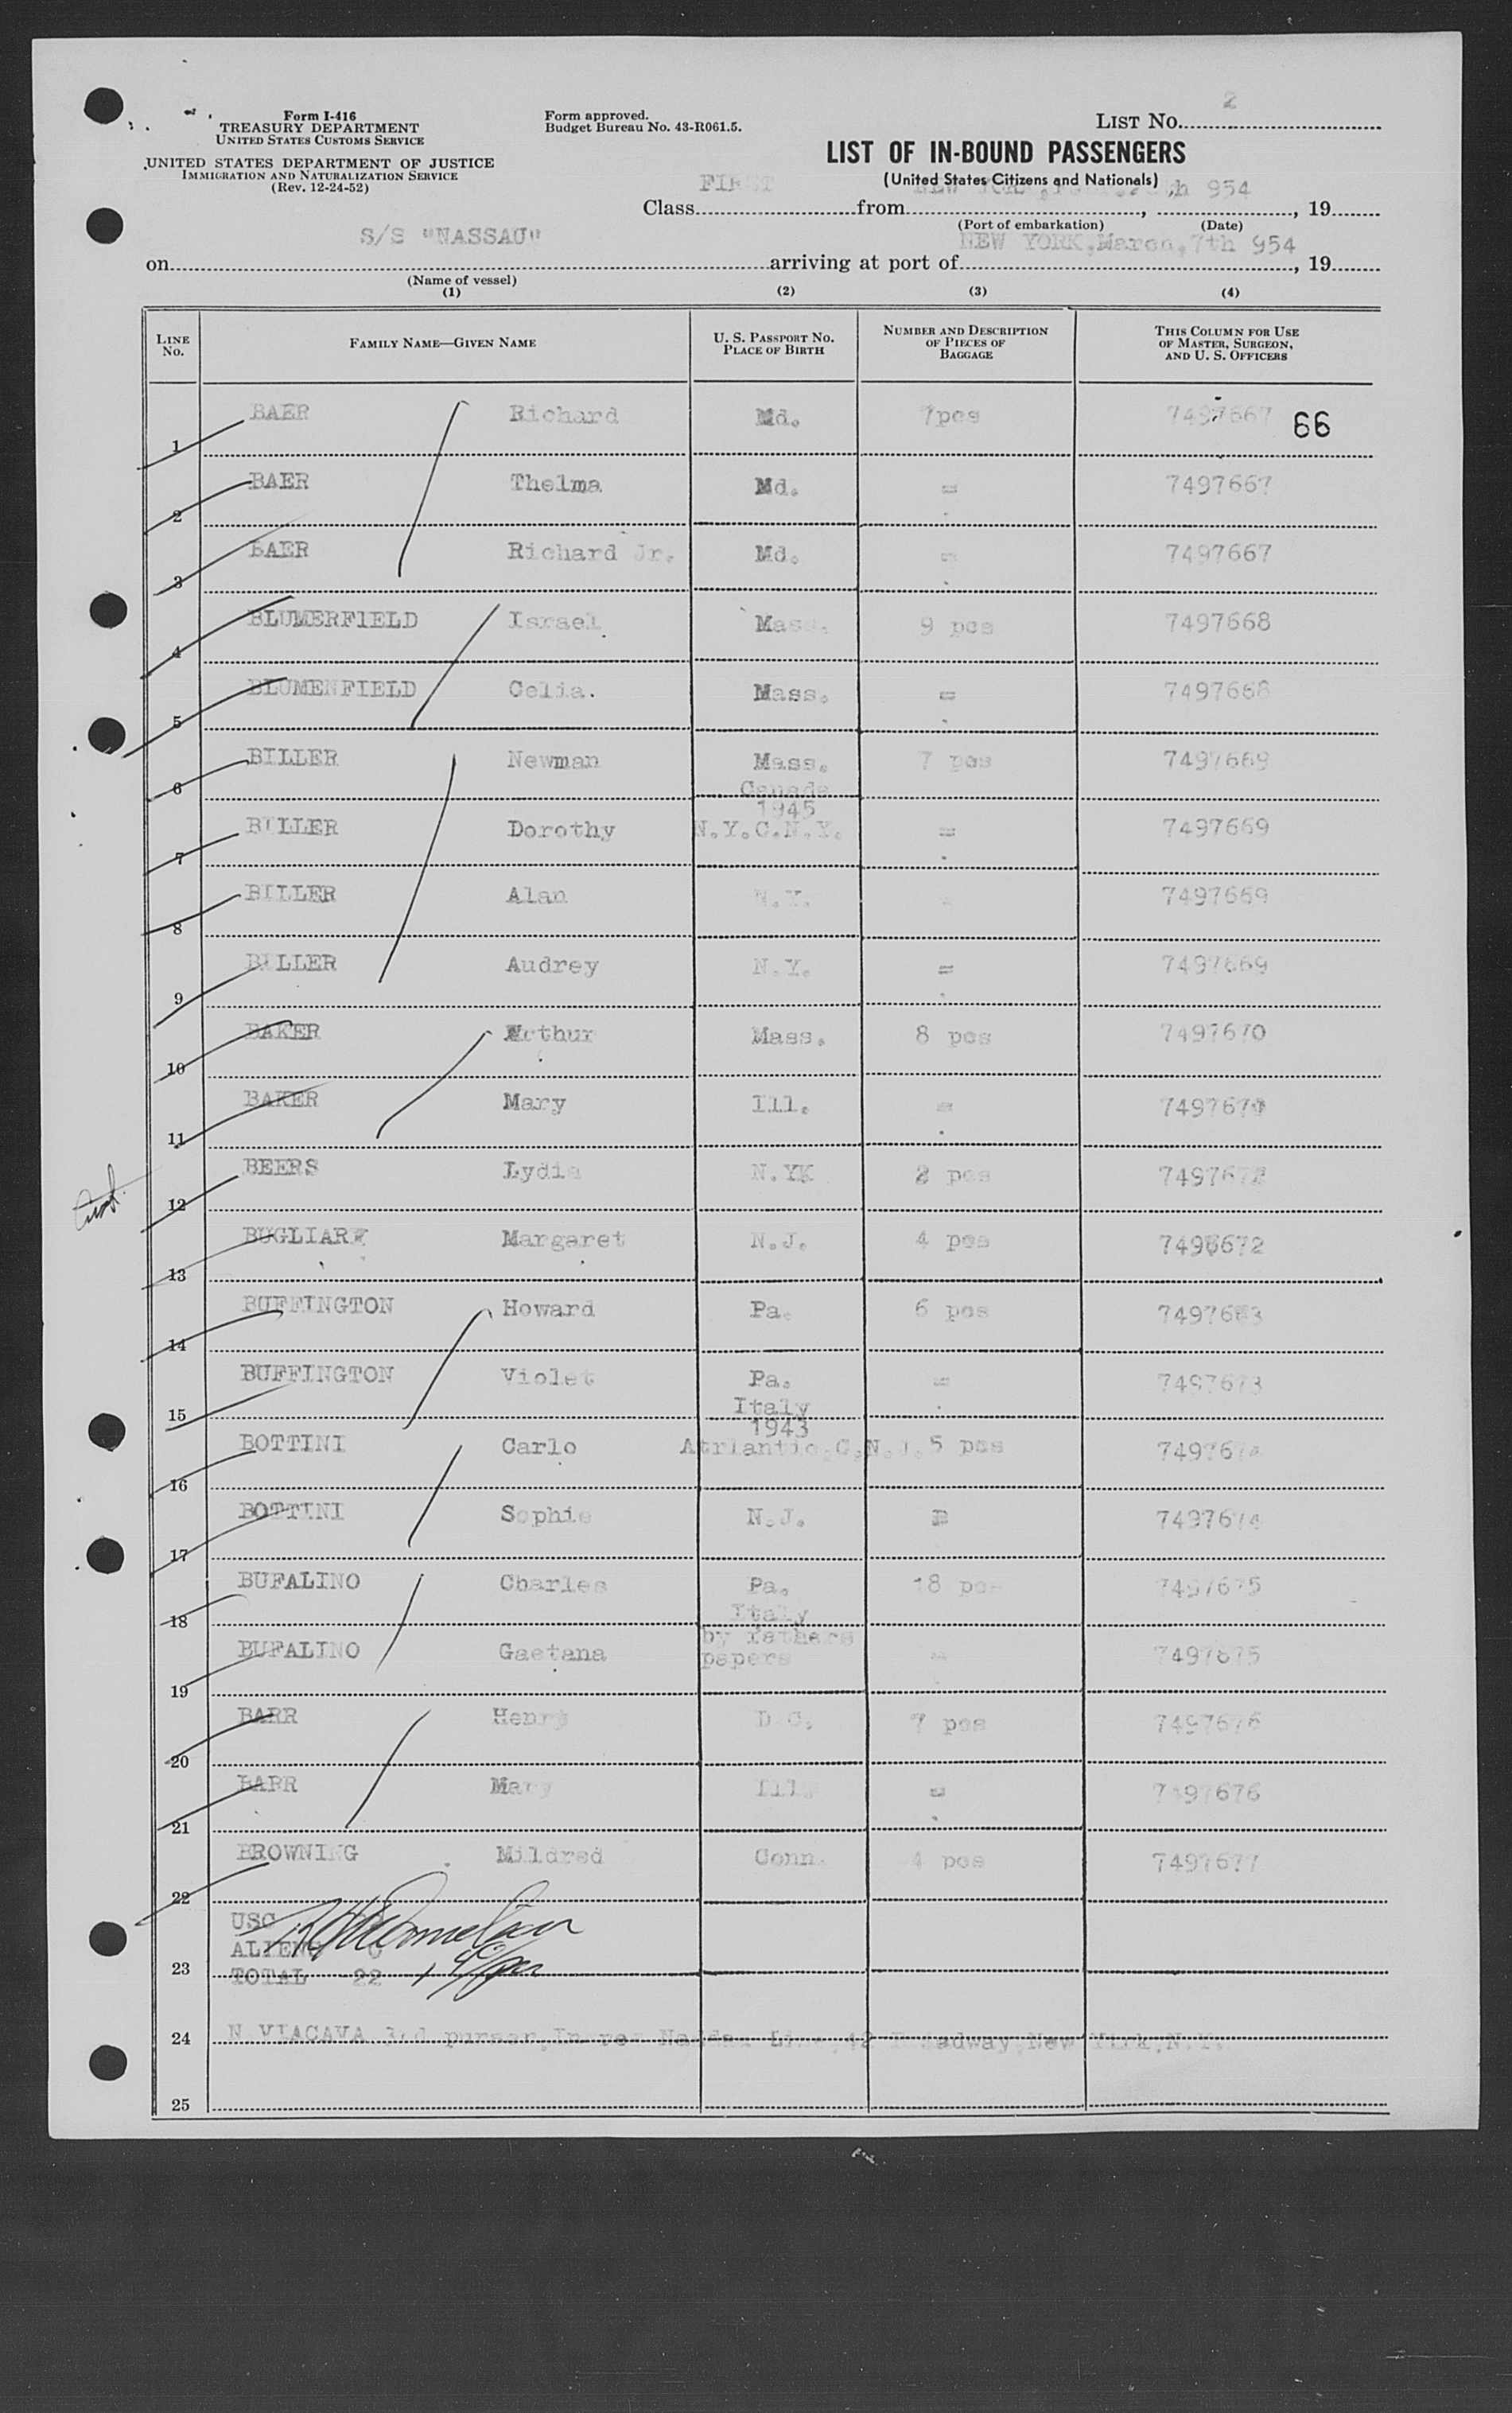 Form I-416
TREASURY DEPARTMENT
UNITED STATES CUSTOMS SERVICE
UNITED STATES DEPARTMENT OF JUSTICE
IMMIGRATION AND NATURALIZATION SERVICE
(Rev. 12-24-52)
Form approved.
Budget Bureau No. 43-R061.5.
LIST No. 2
LIST OF IN-BOUND PASSENGERS
(United States Citizens and Nationals)
Class FIRST from NEW YORK, th 954, 19
(Port of embarkation) (Date)
on S/S "NASSAU" arriving at port of NEW YORK, March, 7th 954, 19
(Name of vessel)
(1) (2) (3) (4)
LINE No. FAMILY NAME—GIVEN NAME U. S. PASSPORT No. PLACE OF BIRTH NUMBER AND DESCRIPTION OF PIECES OF BAGGAGE THIS COLUMN FOR USE OF MASTER, SURGEON, AND U. S. OFFICERS
1 BAER Richard Md. 7pcs 7497667 66
2 BAER Thelma Md. = 7497667
3 BAER Richard Jr. Md. = 7497667
4 BLUMERFIELD Israel Mass. 9 pcs 7497668
5 BLUMENFIELD Celia. Mass. = 7497668
6 BILLER Newman Mass. 7 pcs 7497669
Canada
1945
7 BILLER Dorothy N.Y.C.N.Y. = 7497669
8 BILLER Alan N.Y. = 7497669
9 BILLER Audrey N.Y. = 7497669
10 BAKER Arthur Mass. 8 pcs 7497670
11 BAKER Mary Ill. = 7497670
12 BEERS Lydia N.YK 2 pcs
13 Margaret N.J. 4 pcs 7496672
14 BUFFINGTON Howard Pa. 6 pcs
15 BUFFINGTON Violet Pa. = 7497673
Italy
1943
16 BOTTINI Carlo Atrlantic.C.N.J. 5 pcs 7497674
17 BOTTINI Sophie N.J. = 7497674
18 BUFALINO Charles Pa. 18 pcs 7497675
Italy
by fathers
19 BUFALINO Gaetana papers = 7497675
20 BARR Henry D.C. 7 pcs 7497676
21 BARR Mary Ill. = 7497676
22 BROWNING Mildred Conn. 4 pcs 7497677
USC
ALIENS 0
23 TOTAL 22
24 N VIACAVA 3rd purser, Nassau Line, 42 Broadway, New York, N.Y.
25